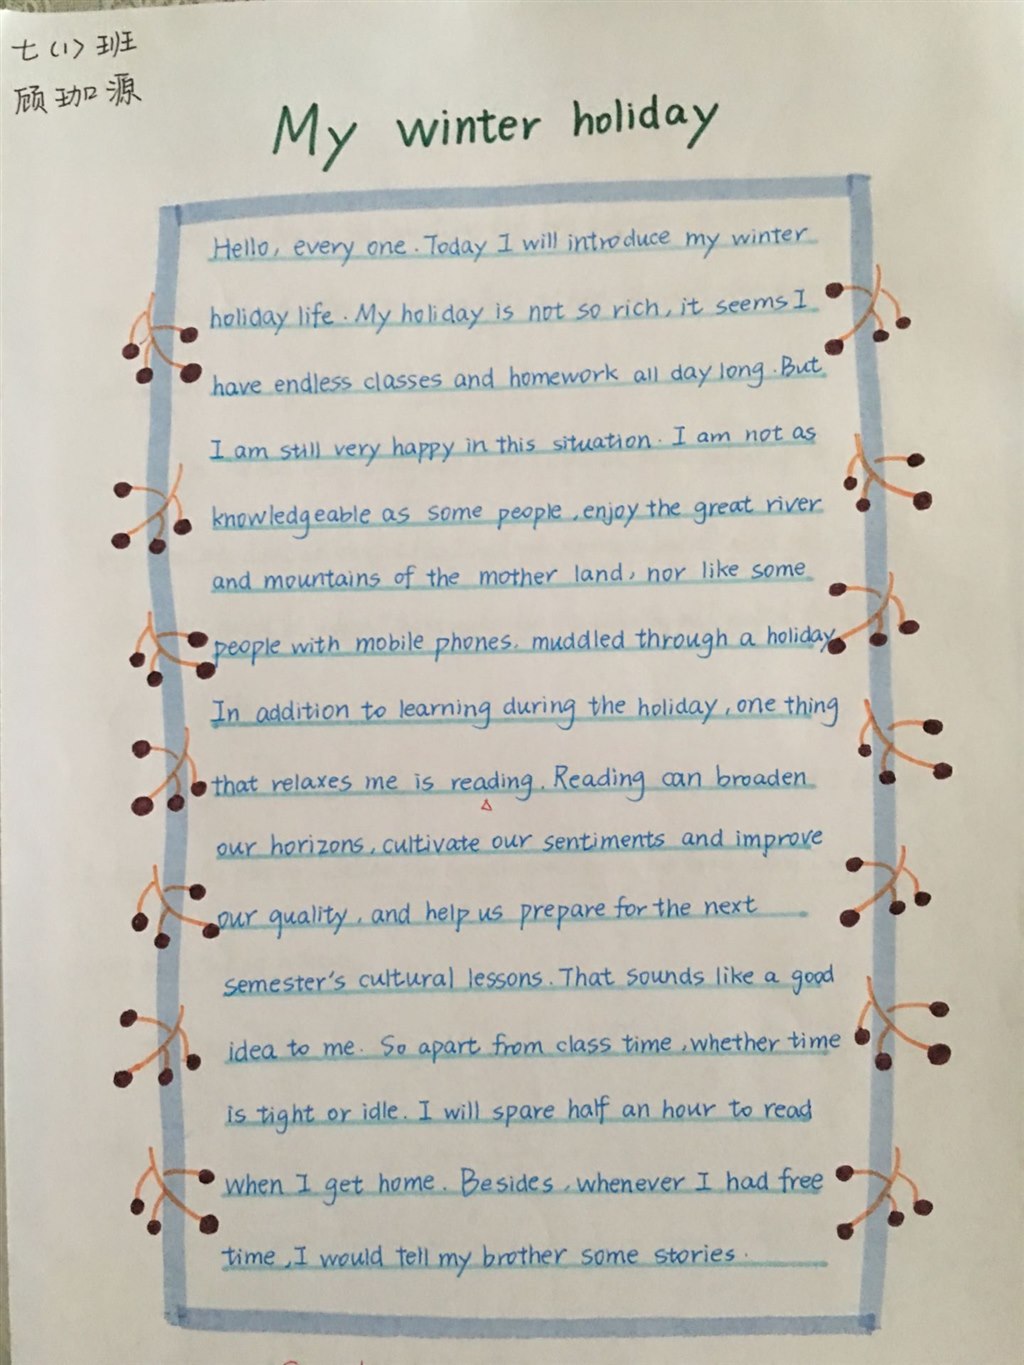 七(1)班
顾珈源
My winter holiday
Hello, every one. Today I will introduce my winter
holiday life. My holiday is not so rich, it seems I
have endless classes and homework all day long. But
I am still very happy in this situation. I am not as
knowledgeable as some people, enjoy the great river
and mountains of the mother land, nor like some
people with mobile phones. muddled through a holiday
In addition to learning during the holiday, one thing
that relaxes me is reading. Reading can broaden
our horizons, cultivate our sentiments and improve
our quality, and help us prepare for the next
semester's cultural lessons. That sounds like a good
idea to me. So apart from class time, whether time
is tight or idle. I will spare half an hour to read
when I get home. Besides, whenever I had free
time, I would tell my brother some stories.